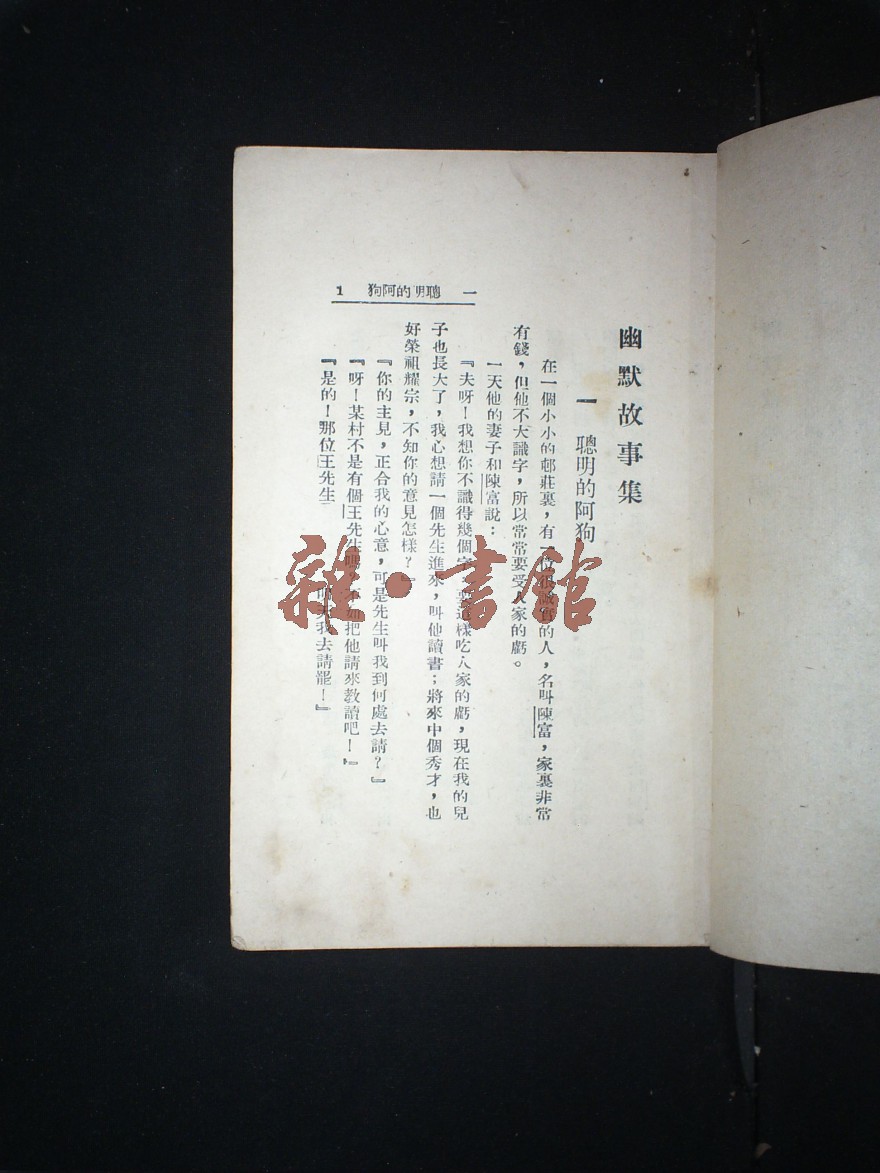 一 聰明的阿狗 1
幽默故事集
一 聰明的阿狗
在一個小小的邨莊裏，有一位很誠實的人，名叫陳富，家裏非常
有錢，但他不大識字，所以常常要受人家的虧。
一天他的妻子和陳富說：
『夫呀！我想你不識得幾個字，要這樣吃人家的虧，現在我的兒
子也長大了，我心想請一個先生進來，叫他讀書；將來中個秀才，也
好榮祖耀宗，不知你的意見怎樣？』
『你的主見，正合我的心意，可是先生叫我到何處去請？』
『呀！某村不是有個王先生嗎，不如把他請來教讀吧！』
『是的！那位王先生 我去請罷！』
雜·書館